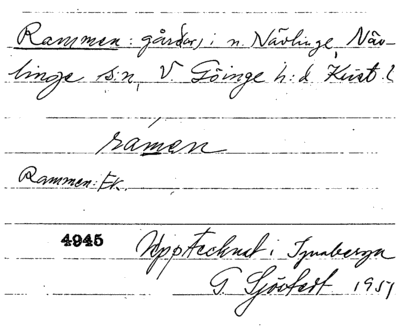 Rammen: gård(ar) i n. Nävlinge, Näv-
linge s:n, V. Göinge h:d Krist. l
rámen
Rammen: Ek.
4945 Upptecknat i Tjnabergn
G. Sjöstedt 1951